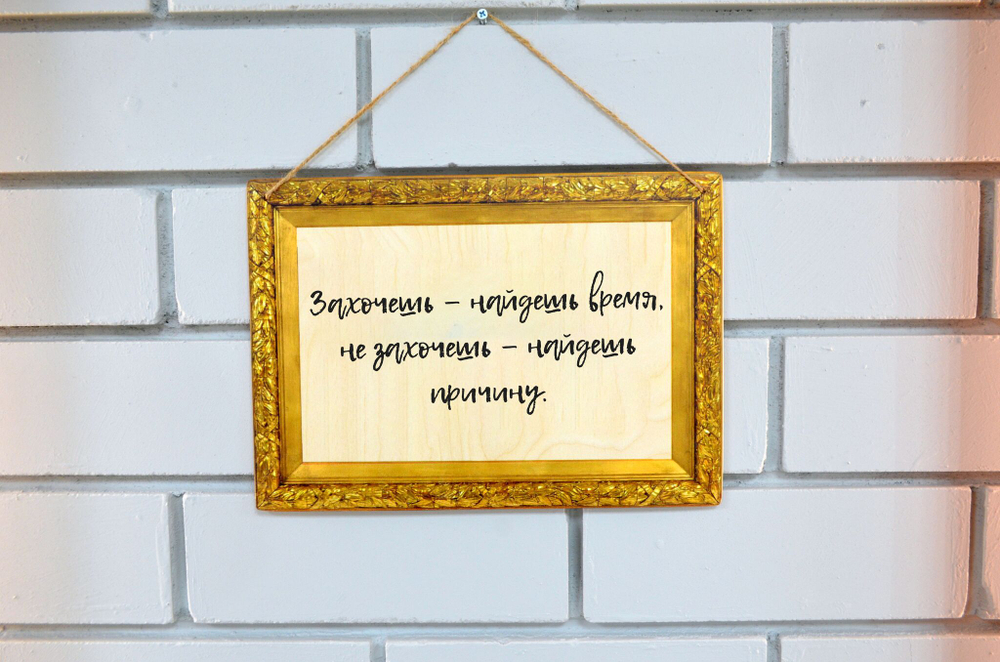 Захочешь – найдешь время,
не захочешь – найдешь
причину.